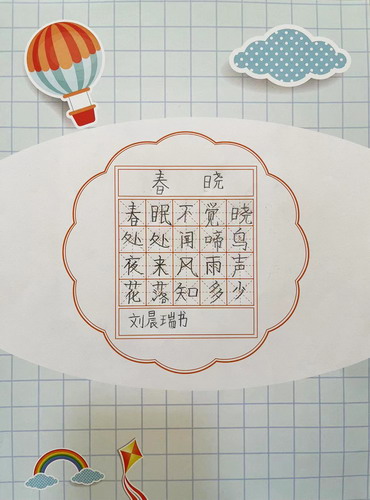 春 晓
春眠不觉晓
处处闻啼鸟
夜来风雨声
花落知多少
刘晨瑞书